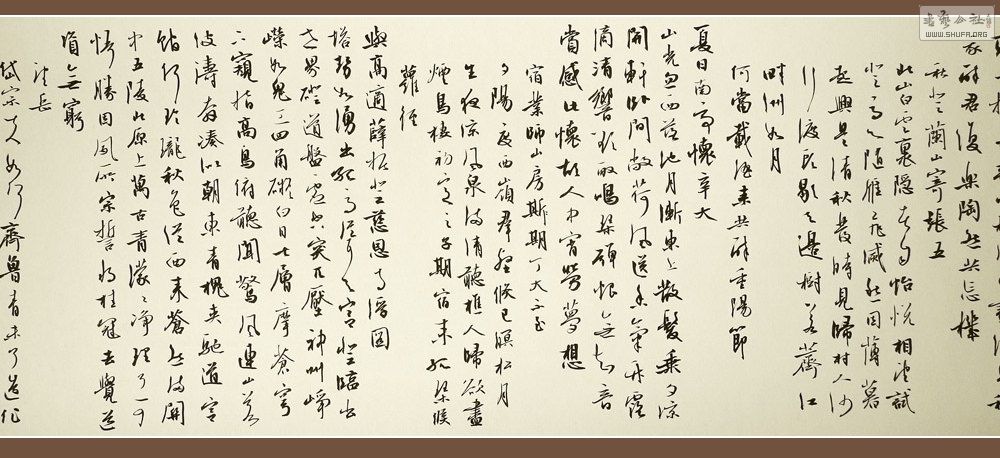 我醉君復樂陶然共忘機
秋登蘭山寄張五
北山白雲裏隱者自怡悅相望試
登高心隨雁飛滅愁因薄暮
起興是清秋發時見歸村人沙
行渡頭歇天邊樹若薺江
畔洲如月
何當載酒來共醉重陽節
夏日南亭懷辛大
山光忽西落池月漸東上散髮乘夕涼
開軒臥閒敞荷風送香氣竹露
滴清響欲取鳴琴彈恨無知音
賞感此懷故人中宵勞夢想
宿業師山房期丁大不至
夕陽度西嶺群壑倏已暝松月
生夜涼風泉滿清聽樵人歸欲盡
煙鳥棲初定之子期宿來孤琴候
蘿徑
與高適薛據登慈恩寺浮圖
塔勢如湧出孤高聳天宮登臨出
世界磴道盤虛空突兀壓神州崢
嶸如鬼工四角礙白日七層摩蒼穹
下窺指高鳥俯聽聞驚風連山若
波濤奔湊似朝東青槐夾馳道宮
館何玲瓏秋色從西來蒼然滿關
中五陵北原上萬古青濛濛淨理了可
悟勝因夙所宗誓將掛冠去覺道
資無窮
望岳
岱宗夫如何齊魯青未了造化
書藝公社
WWW.SHUFA.ORG